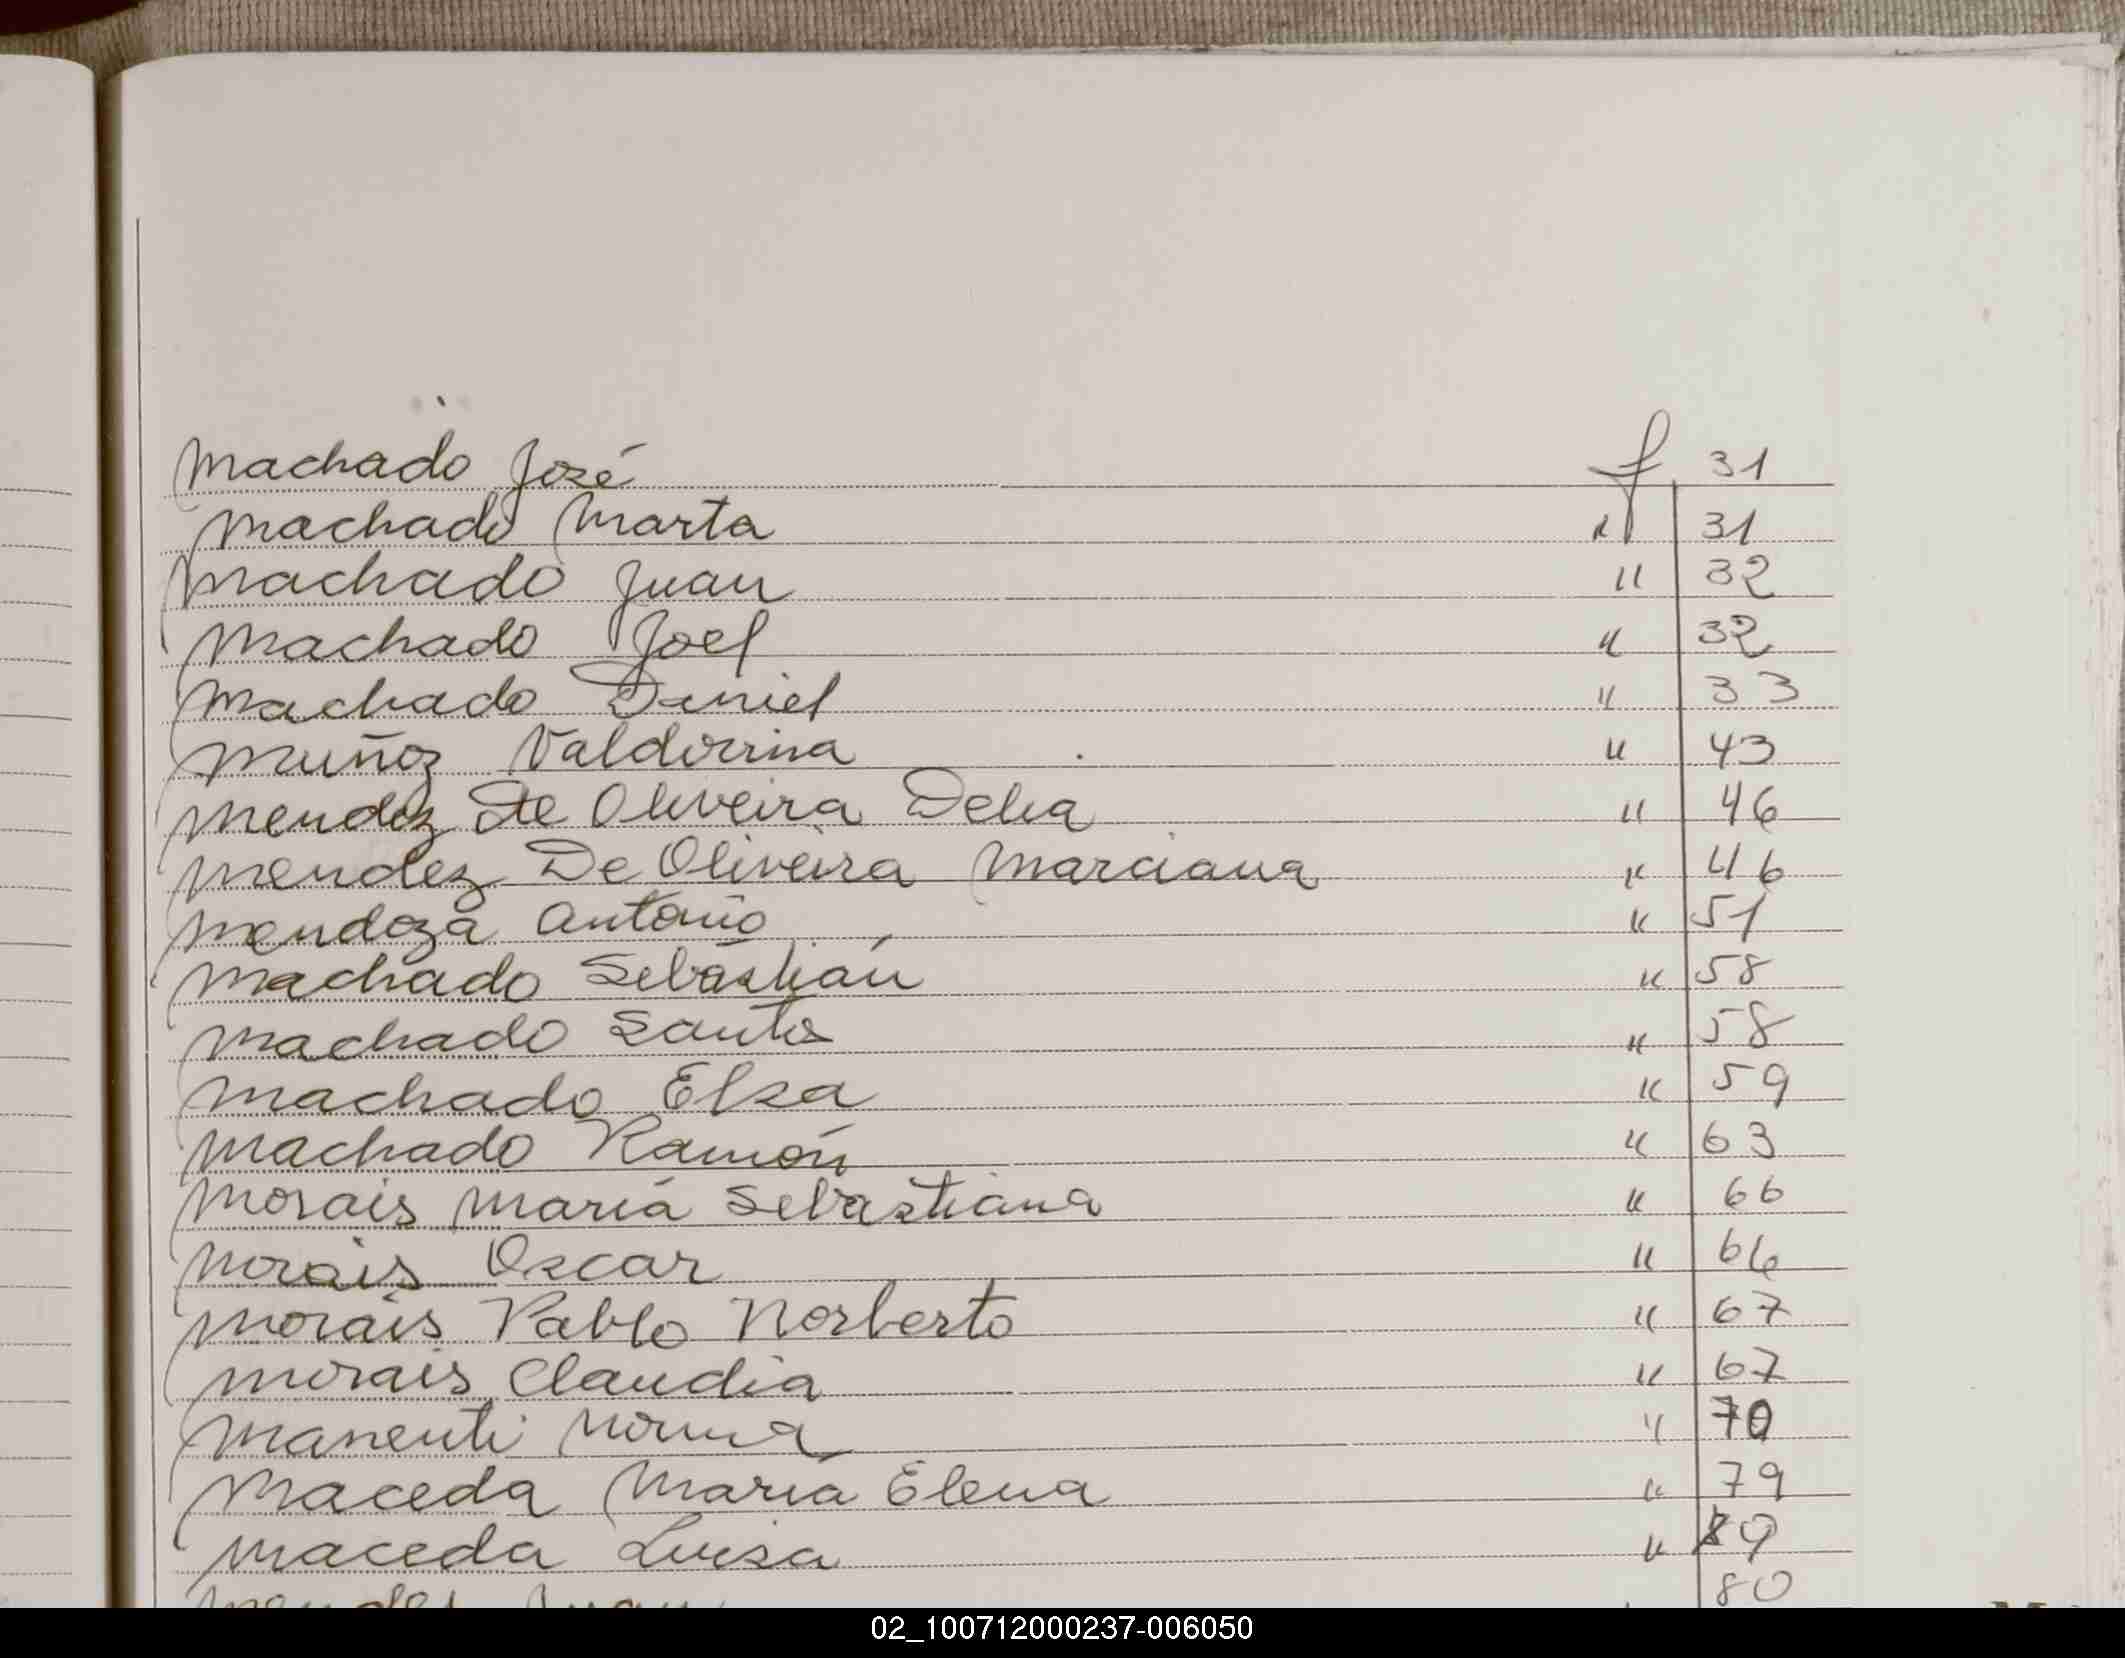 Machado José f 31
Machado Marta " 31
Machado Juan " 32
Machado Joel " 32
Machado Daniel " 33
Muñoz Valdovina " 43
Mendez De Oliveira Delia " 46
Mendez De Oliveira Marciana " 46
Mendoza Antonio " 51
Machado Sebastián " 58
Machado Santos " 58
Machado Elsa " 59
Machado Ramón " 63
Morais María Sebastiana " 66
Morais Oscar " 66
Morais Pablo Norberto " 67
Morais Claudia " 67
Manenti Norma " 70
Maceda María Elena " 79
Maceda Luisa " 79
80
02_100712000237-006050